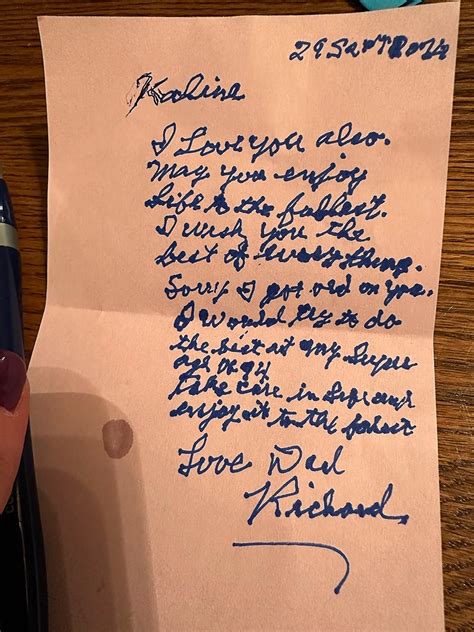 29 Sept 2024
I Love you also.
May you enjoy
Life to the fullest.
I wish you the
best of everything.
Sorry I got old on you.
I would try to do
the best at my Super
age of 94
take care in Life and
enjoy it to the fullest
Love Dad
Richard